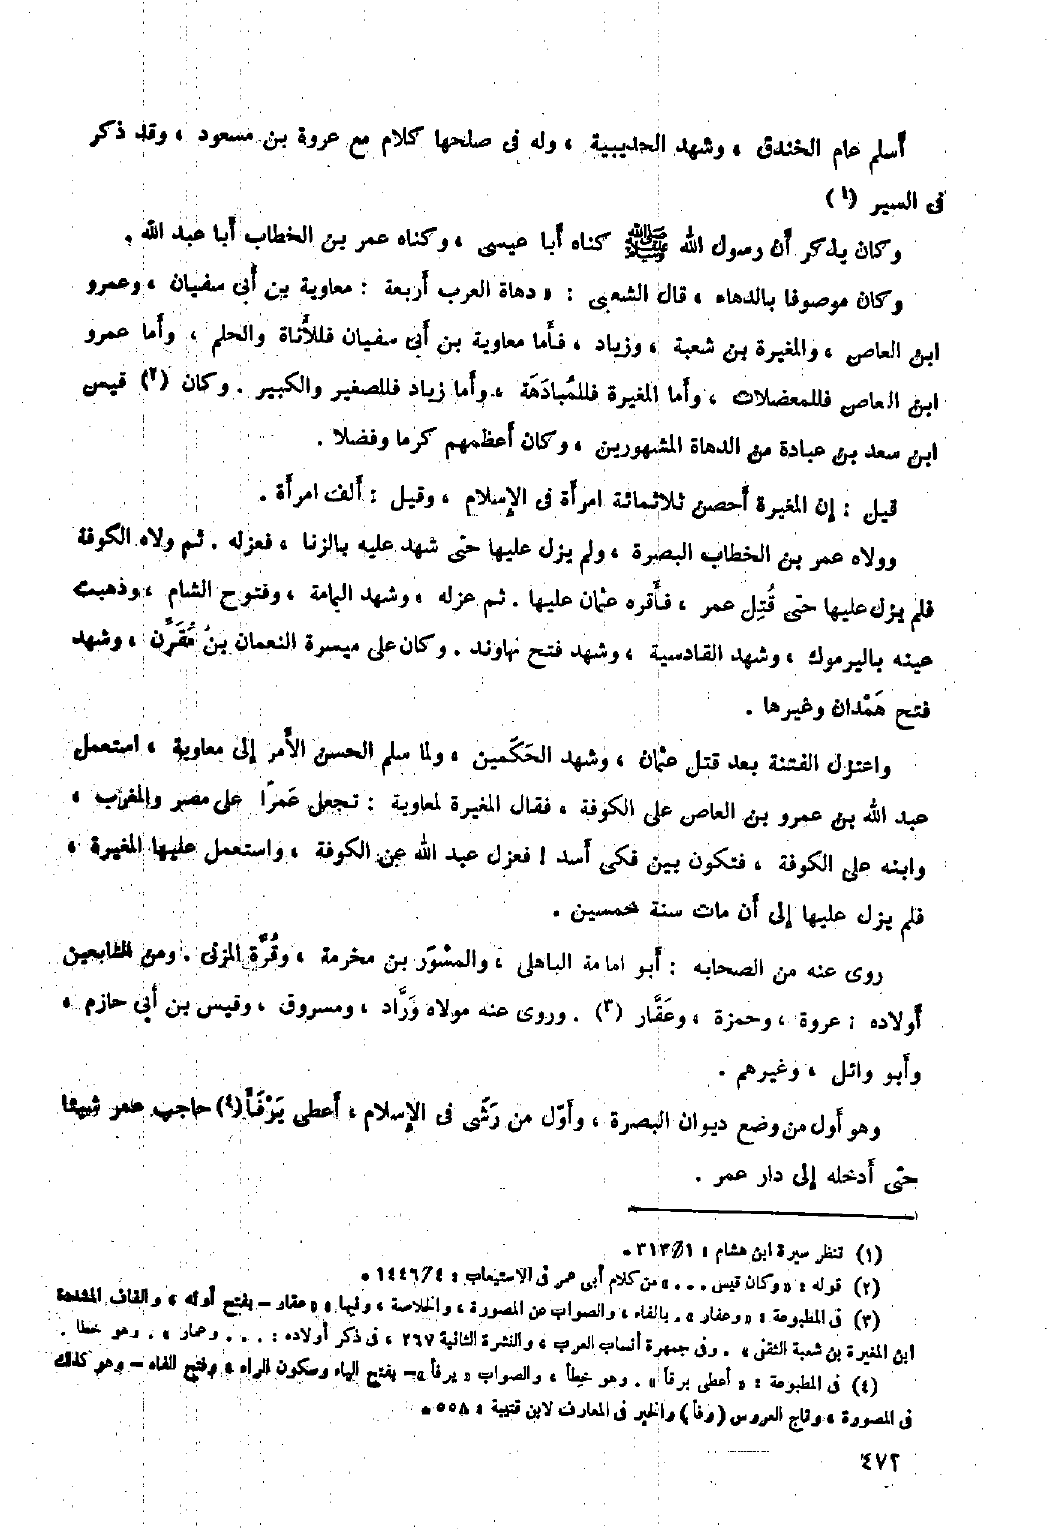 أسلم عام الخندق ، وشهد الحديبية ، وله فى صلحها كلام مع عروة بن مسعود ، وقد ذكر
فى السير (١)
وكان يذكر أن رسول الله ﷺ كناه أبا عيسى ، وكناه عمر بن الخطاب أبا عبد الله .
وكان موصوفا بالدهاء ، قال الشعبى : « دهاة العرب أربعة : معاوية بن أبى سفيان ، وعمرو
ابن العاص ، والمغيرة بن شعبة ، وزياد ، فأما معاوية بن أبى سفيان فللأناة والحلم ، وأما عمرو
ابن العاص فللمعضلات ، وأما المغيرة فللمُبادَهَة ، وأما زياد فللصغير والكبير . وكان (٢) قيس
ابن سعد بن عبادة من الدهاة المشهورين ، وكان أعظمهم كرما وفضلا .
قيل : إن المغيرة أحصن ثلاثمائة امرأة فى الإسلام ، وقيل : ألف امرأة .
وولاه عمر بن الخطاب البصرة ، ولم يزل عليها حتى شهد عليه بالزنا ، فعزله . ثم ولاه الكوفة
فلم يزل عليها حتى قُتِل عمر ، فأقره عثمان عليها . ثم عزله ، وشهد اليمامة ، وفتوح الشام ، وذهبت
عينه باليرموك ، وشهد القادسية ، وشهد فتح نهاوند . وكان على ميسرة النعمان بن مُقَرِّن ، وشهد
فتح هَمْدان وغيرها .
واعتزل الفتنة بعد قتل عثمان ، وشهد الحَكَمين ، ولما سلم الحسن الأمر إلى معاوية ، استعمل
عبد الله بن عمرو بن العاص على الكوفة ، فقال المغيرة لمعاوية : تجعل عَمرًا على مصر والمغرب ،
وابنه على الكوفة ، فتكون بين فكى أسد ! فعزل عبد الله عن الكوفة ، واستعمل عليها المغيرة ،
فلم يزل عليها إلى أن مات سنة خمسين .
روى عنه من الصحابه : أبو امامة الباهلى ، والمسْوَر بن مخرمة ، وقُرَّة المزنى . ومن التابعين
أولاده : عروة ، وحمزة ، وعَقَّار (٣) . وروى عنه مولاه وَرَّاد ، ومسروق ، وقيس بن أبي حازم ،
وأبو وائل ، وغيرهم .
وهو أول من وضع ديوان البصرة ، وأوّل من رَشَى فى الإسلام ، أعطى يَرْفَأَ (٤) حاجب عمر شيئا
حتى أدخله إلى دار عمر .
(١) تنظر سيرة ابن هشام : ٣١٣/١ .
(٢) قوله : « وكان قيس . . . » من كلام أبى عمر فى الاستيعاب : ١٤٤٦/٤ .
(٣) فى المطبوعة : « وعفار » . بالفاء ، والصواب عن المصورة ، والخلاصة ، وفيها : « عقار – بفتح أوله ، والقاف المشددة
ابن المغيرة بن شعبة الثقفى » . وفى جمهرة أنساب العرب ، والنشرة الثانية ٢٦٧ ، فى ذكر أولاده : . . . وعمار » . وهو خطأ .
(٤) فى المطبوعة : « أعطى برقأ » . وهو خطأ ، والصواب « يرفأ » – بفتح الياء وسكون الراء ، وفتح الفاء – وهو كذلك
فى المصورة ، وتاج العروس (رفأ) والخبر فى المعارف لابن قتيبة : ٥٥٨ .
٤٧٢